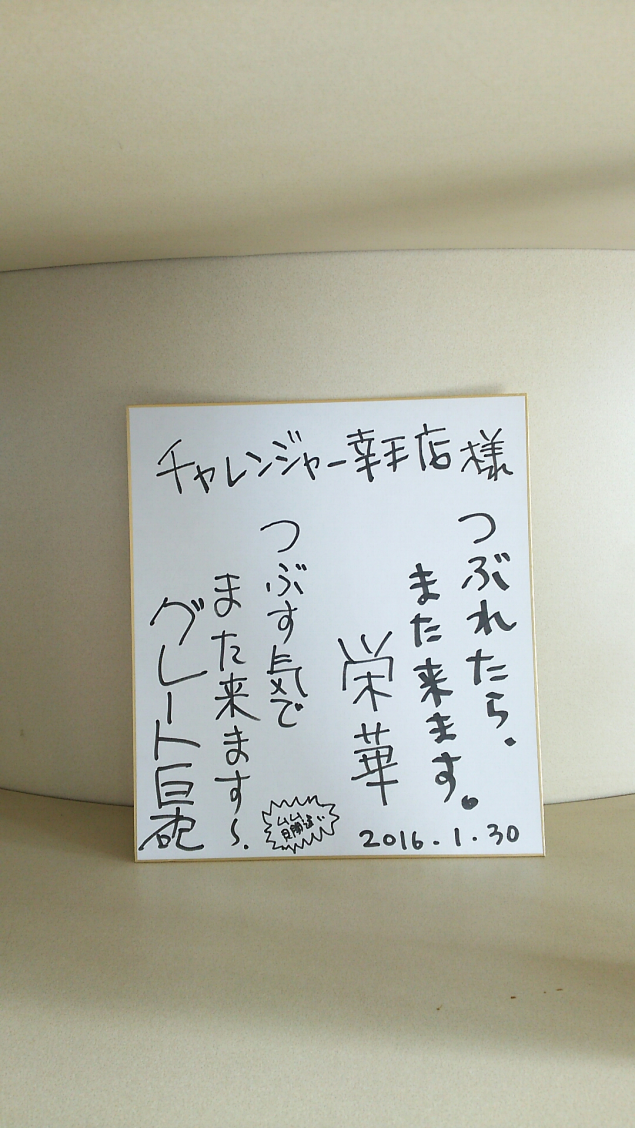 チャレンジャー幸手店様
つぶれたら、
また来ます。
栄華
つぶす気で
また来ます〜.
グレート巨砲
2016.1.30